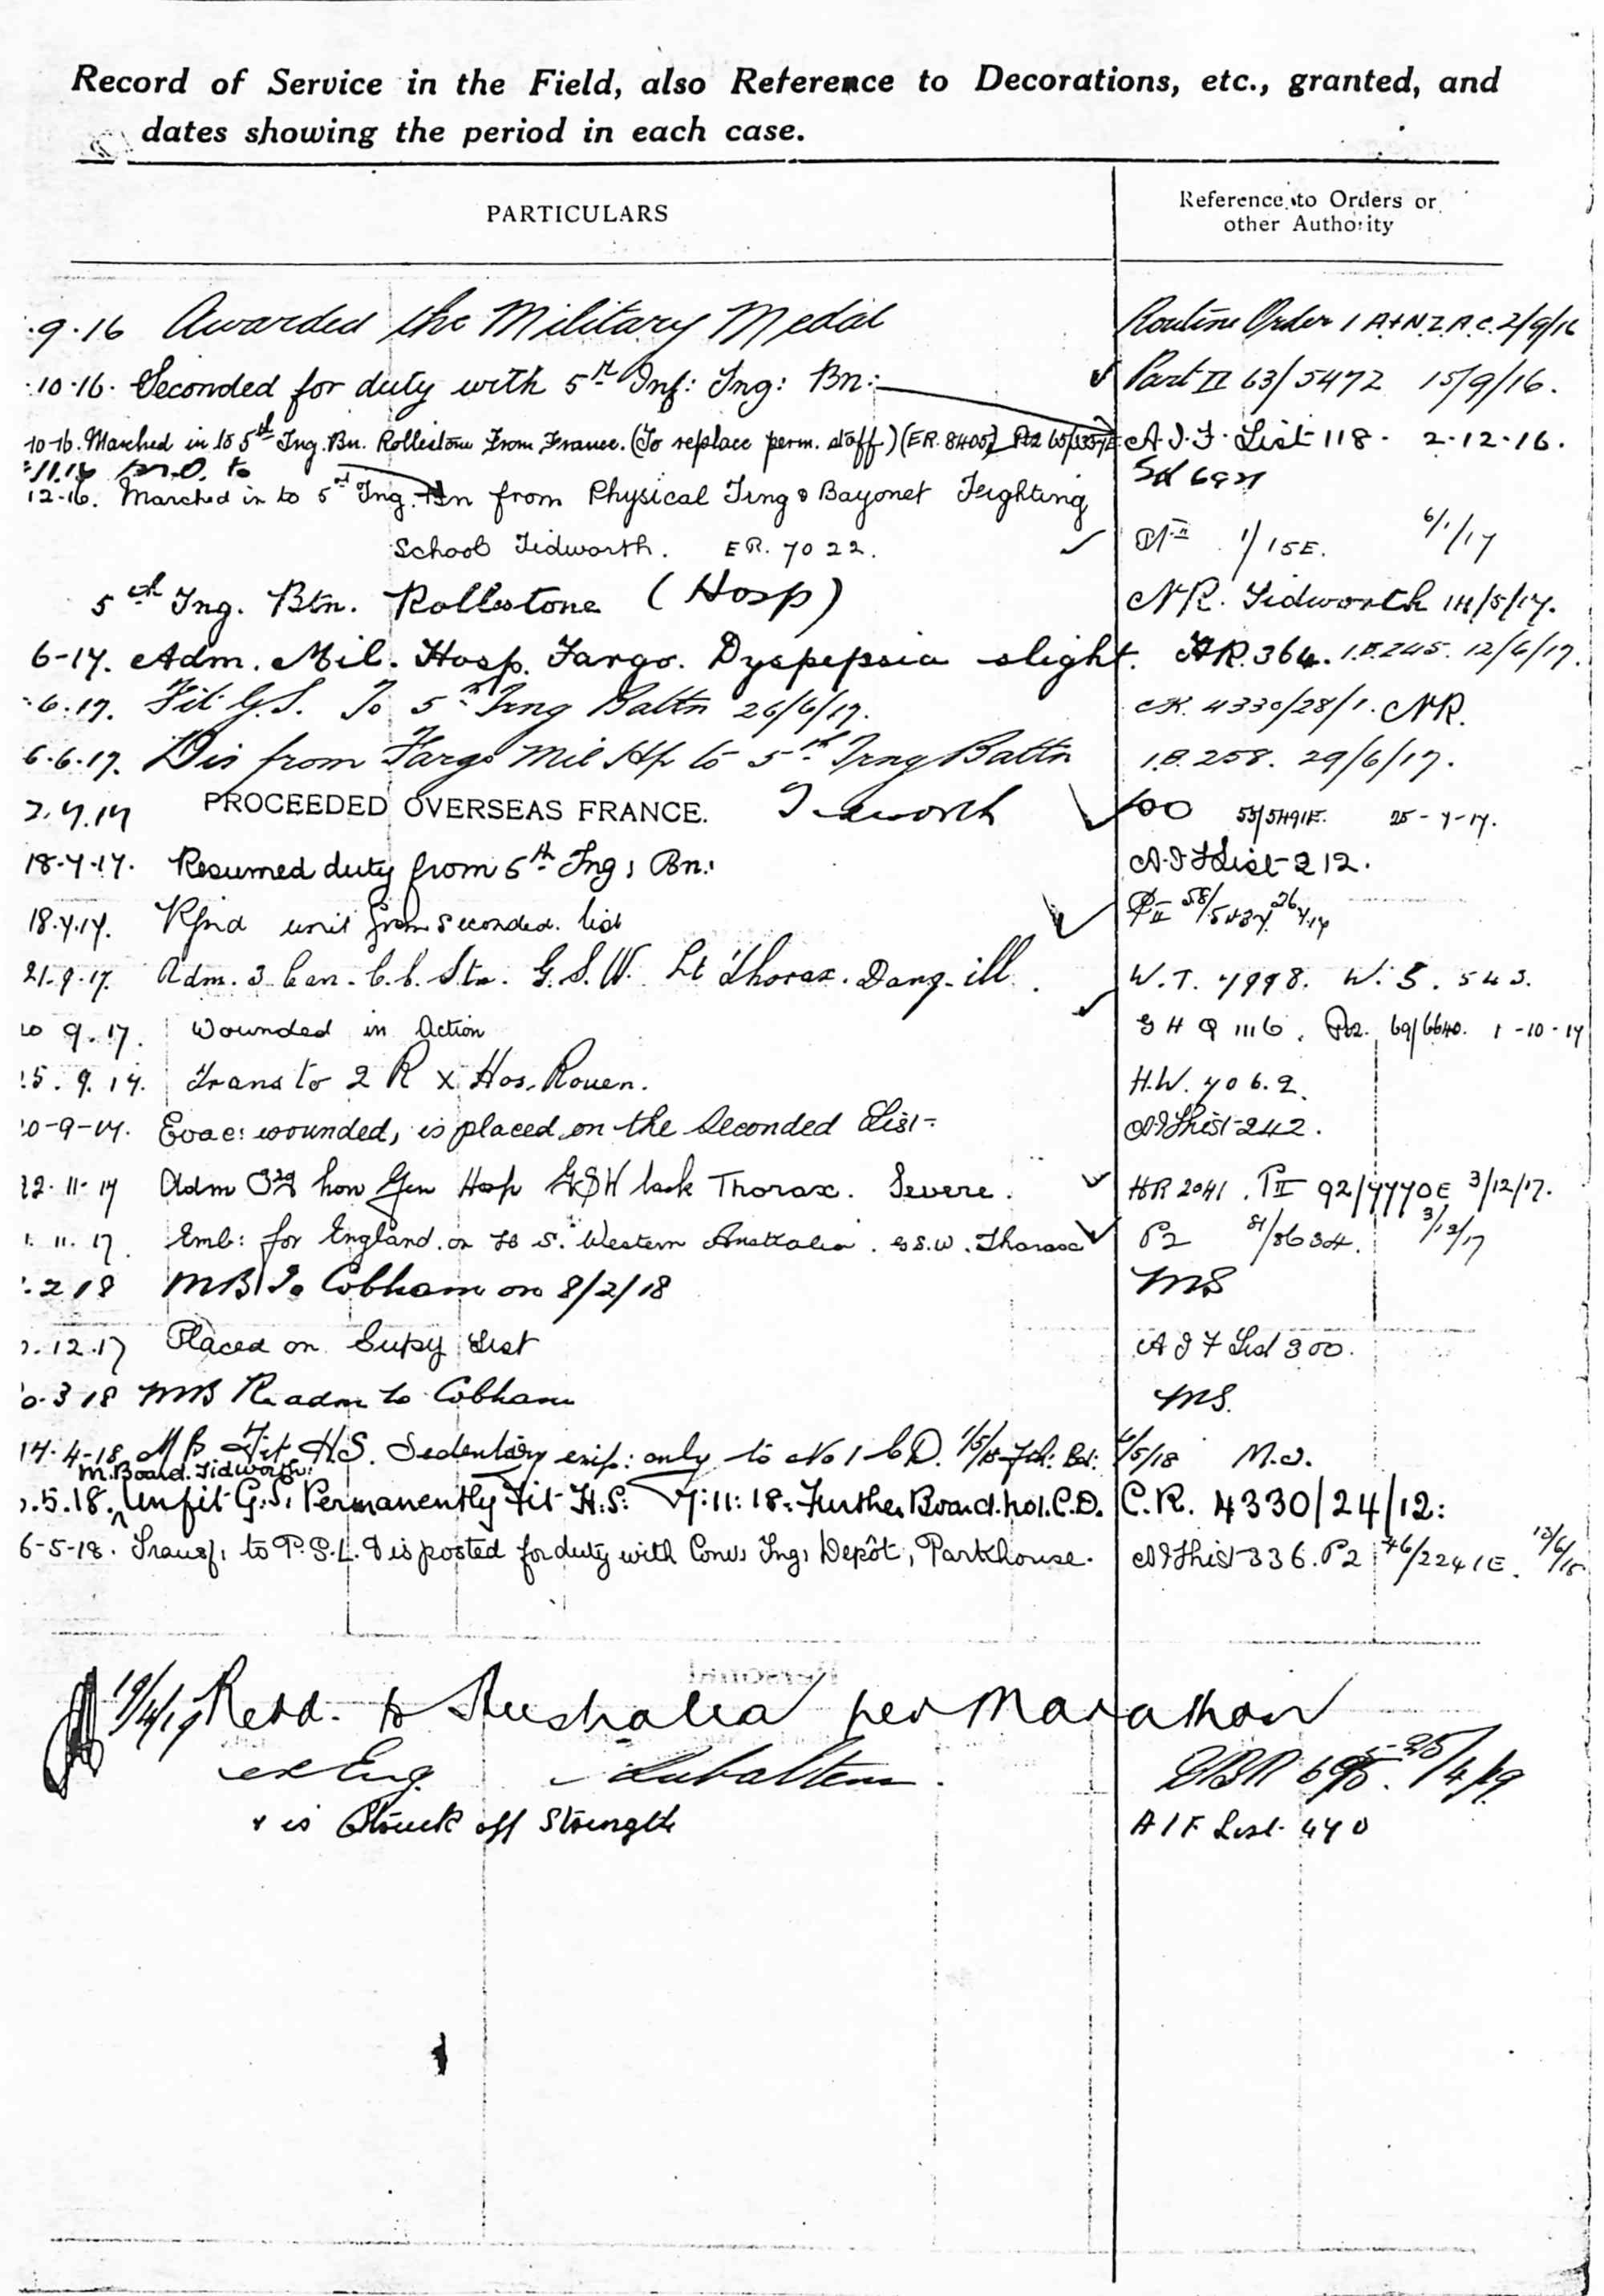 Record of Service in the Field, also Reference to Decorations, etc., granted, and
dates showing the period in each case.
PARTICULARS
Reference to Orders or
other Authority
.9.16 Awarded the Military Medal Routine Order 1 A+N.Z.A.C. 2/9/16
.10.16. Seconded for duty with 5th Inf: Tng: Bn: Part II 63/5472 15/9/16.
10-16. Marched in to 5th Tng. Bn. Rollestone From France. (To replace perm. staff) (ER. 8405) A.I.F. List 118. 2.12.16.
to
12-16. Marched in to 5th Tng. Bn from Physical Trng & Bayonet Fighting
School Tidworth. ER. 7022. 1/15E. 6/1/17
5th Tng. Btn. Rollestone (Hosp) NR. Tidworth 14/5/17.
6-17. Adm. Mil. Hosp. Fargo. Dyspepsia slight. HR. 364. I.B. 245. 12/6/17.
.6.17. Fit G.S. To 5th Trng Battn 26/6/17. 4330/28/1. NR.
6.6.17. Dis from Fargo Mil Hp to 5th Trng Battn I.B. 258. 29/6/17.
2.7.17 PROCEEDED OVERSEAS FRANCE. 55/5491E. 25-7-17.
18.7.17. Resumed duty from 5th Tng: Bn: A.I.F List 212.
18.7.17. Rjnd unit from seconded list PII 58/5437 26.7.17
21.9.17. Adm. 3 Can. C.C. Stn. G.S.W. Lt Thorax. Dang. ill. W.T. 7998. W.S. 543.
20 9.17. Wounded in Action G H Q 1116. Pt2. 69/6640. 1-10-17
25.9.17. Trans to 2 R X Hos. Rouen. H.W. 7062.
20-9-17. Evac: wounded, is placed on the Seconded List- AIF List 242.
22.11.17 Adm 3rd Lon Gen Hosp GSW back Thorax. Severe. HR 2041. PII 92/7770E 3/12/17.
1.11.17 Emb: for England on H S. Western Australia. G.S.W. Thorax P2 81/8634. 3/12/17
.2 18 MB To Cobham on 8/2/18 MS
.12.17 Placed on Supy List A I F List 300.
0.3 18 MB Readm to Cobham MS.
17.4-18 M B Fit H.S. Sedentary emp: only to No 1 C.D. 1/5/18 /5/18
M. Board. Tidworth:
.5.18. Unfit G.S. Permanently Fit H.S: 7:11:18: Further Board. No1. C.D. C.R. 4330/24/12:
6-5-18. Transf: to P.S.L. & is posted for duty with Conv: Tng: Depôt, Parkhouse. AIF List 336. P2 46/2241E. 12/6/18
19/4/19 Retd. to Australia per Marathon
ex Eng. Subaltern. /4/19
& is Struck off Strength A I F List 440